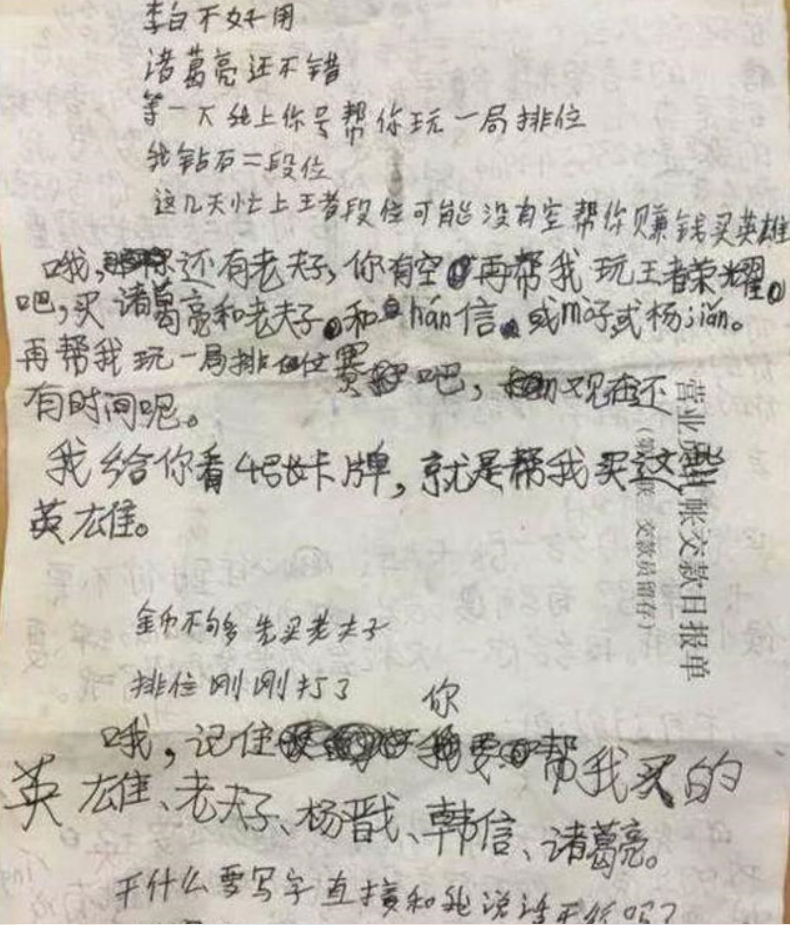 李白不好用
诸葛亮还不错
等一下我上你号帮你玩一局排位
我钻石二段位
这几天忙上王者段位可能没有空帮你赚钱买英雄
哦,还有老夫子,你有空再帮我玩王者荣耀
吧,买诸葛亮和老夫子和hán信或m子或杨jiǎn。
再帮我玩一局排位赛吧,现在还
有时间呢。
我给你看4张卡牌,就是帮我买这些
英雄。
营业 帐交款日报单
交款员留存)
金币不够多先买老夫子
排位刚刚打了
你
哦,记住要帮我买的
英雄、老夫子、杨戬、韩信、诸葛亮。
干什么要写字直接和我说话不行吗?